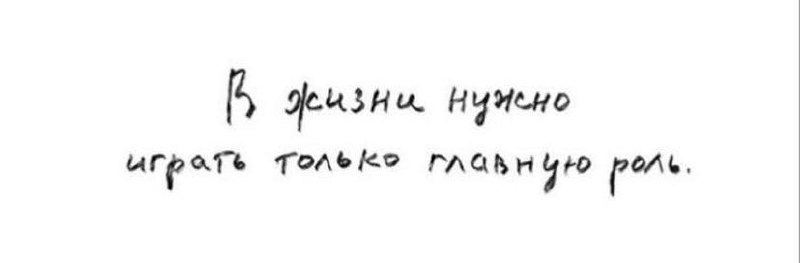 В жизни нужно
играть только главную роль.